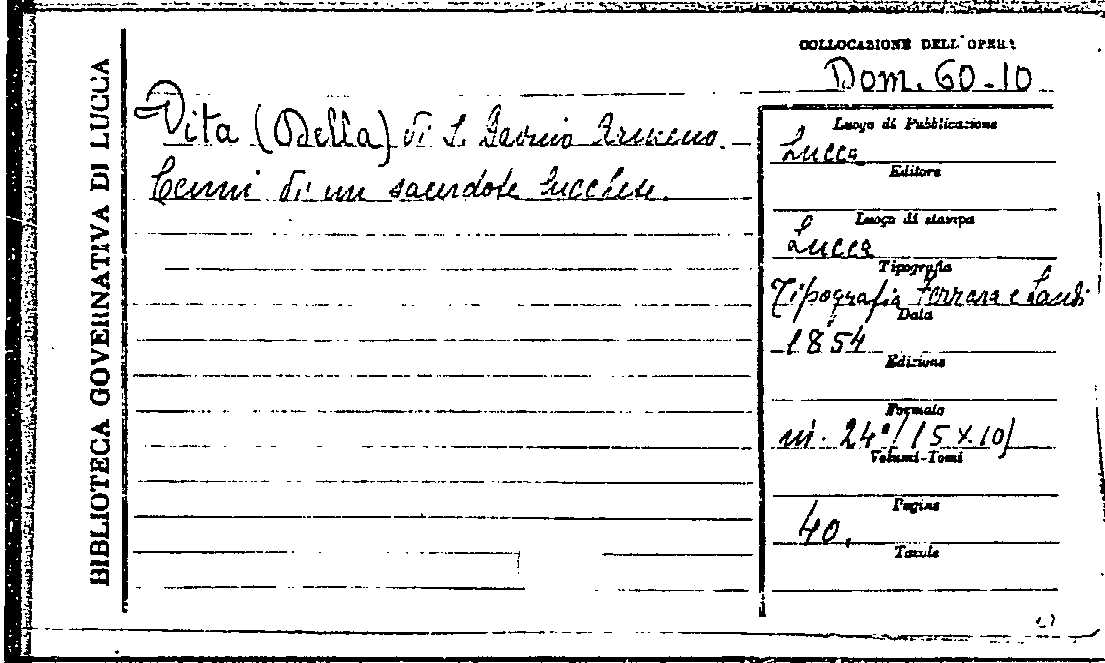 BIBLIOTECA GOVERNATIVA DI LUCCA
COLLOCAZIONE DELL'OPERA
Dom. 60-10
Vita (Della) di S. Davino Armeno.
Cenni di un sacerdote lucchese.
Luogo di Pubblicazione
Lucca
Editore
Luogo di stampa
Lucca
Tipografia
Tipografia Ferrara e Landi
Data
1854
Edizione
Formato
in. 24°(15X10)
Volumi-Tomi
Pagine
40.
Tavole